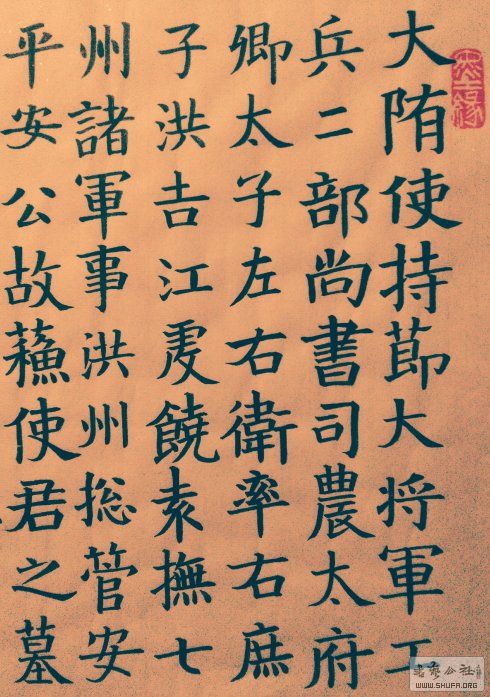 大隋使持莭大将軍工
兵二部尚書司農太府
卿太子左右衛率右庶
子洪吉江虔饒袁撫七
州諸軍事洪州捴管安
平安公故蘓使君之墓
書藝公社
WWW.SHUFA.ORG